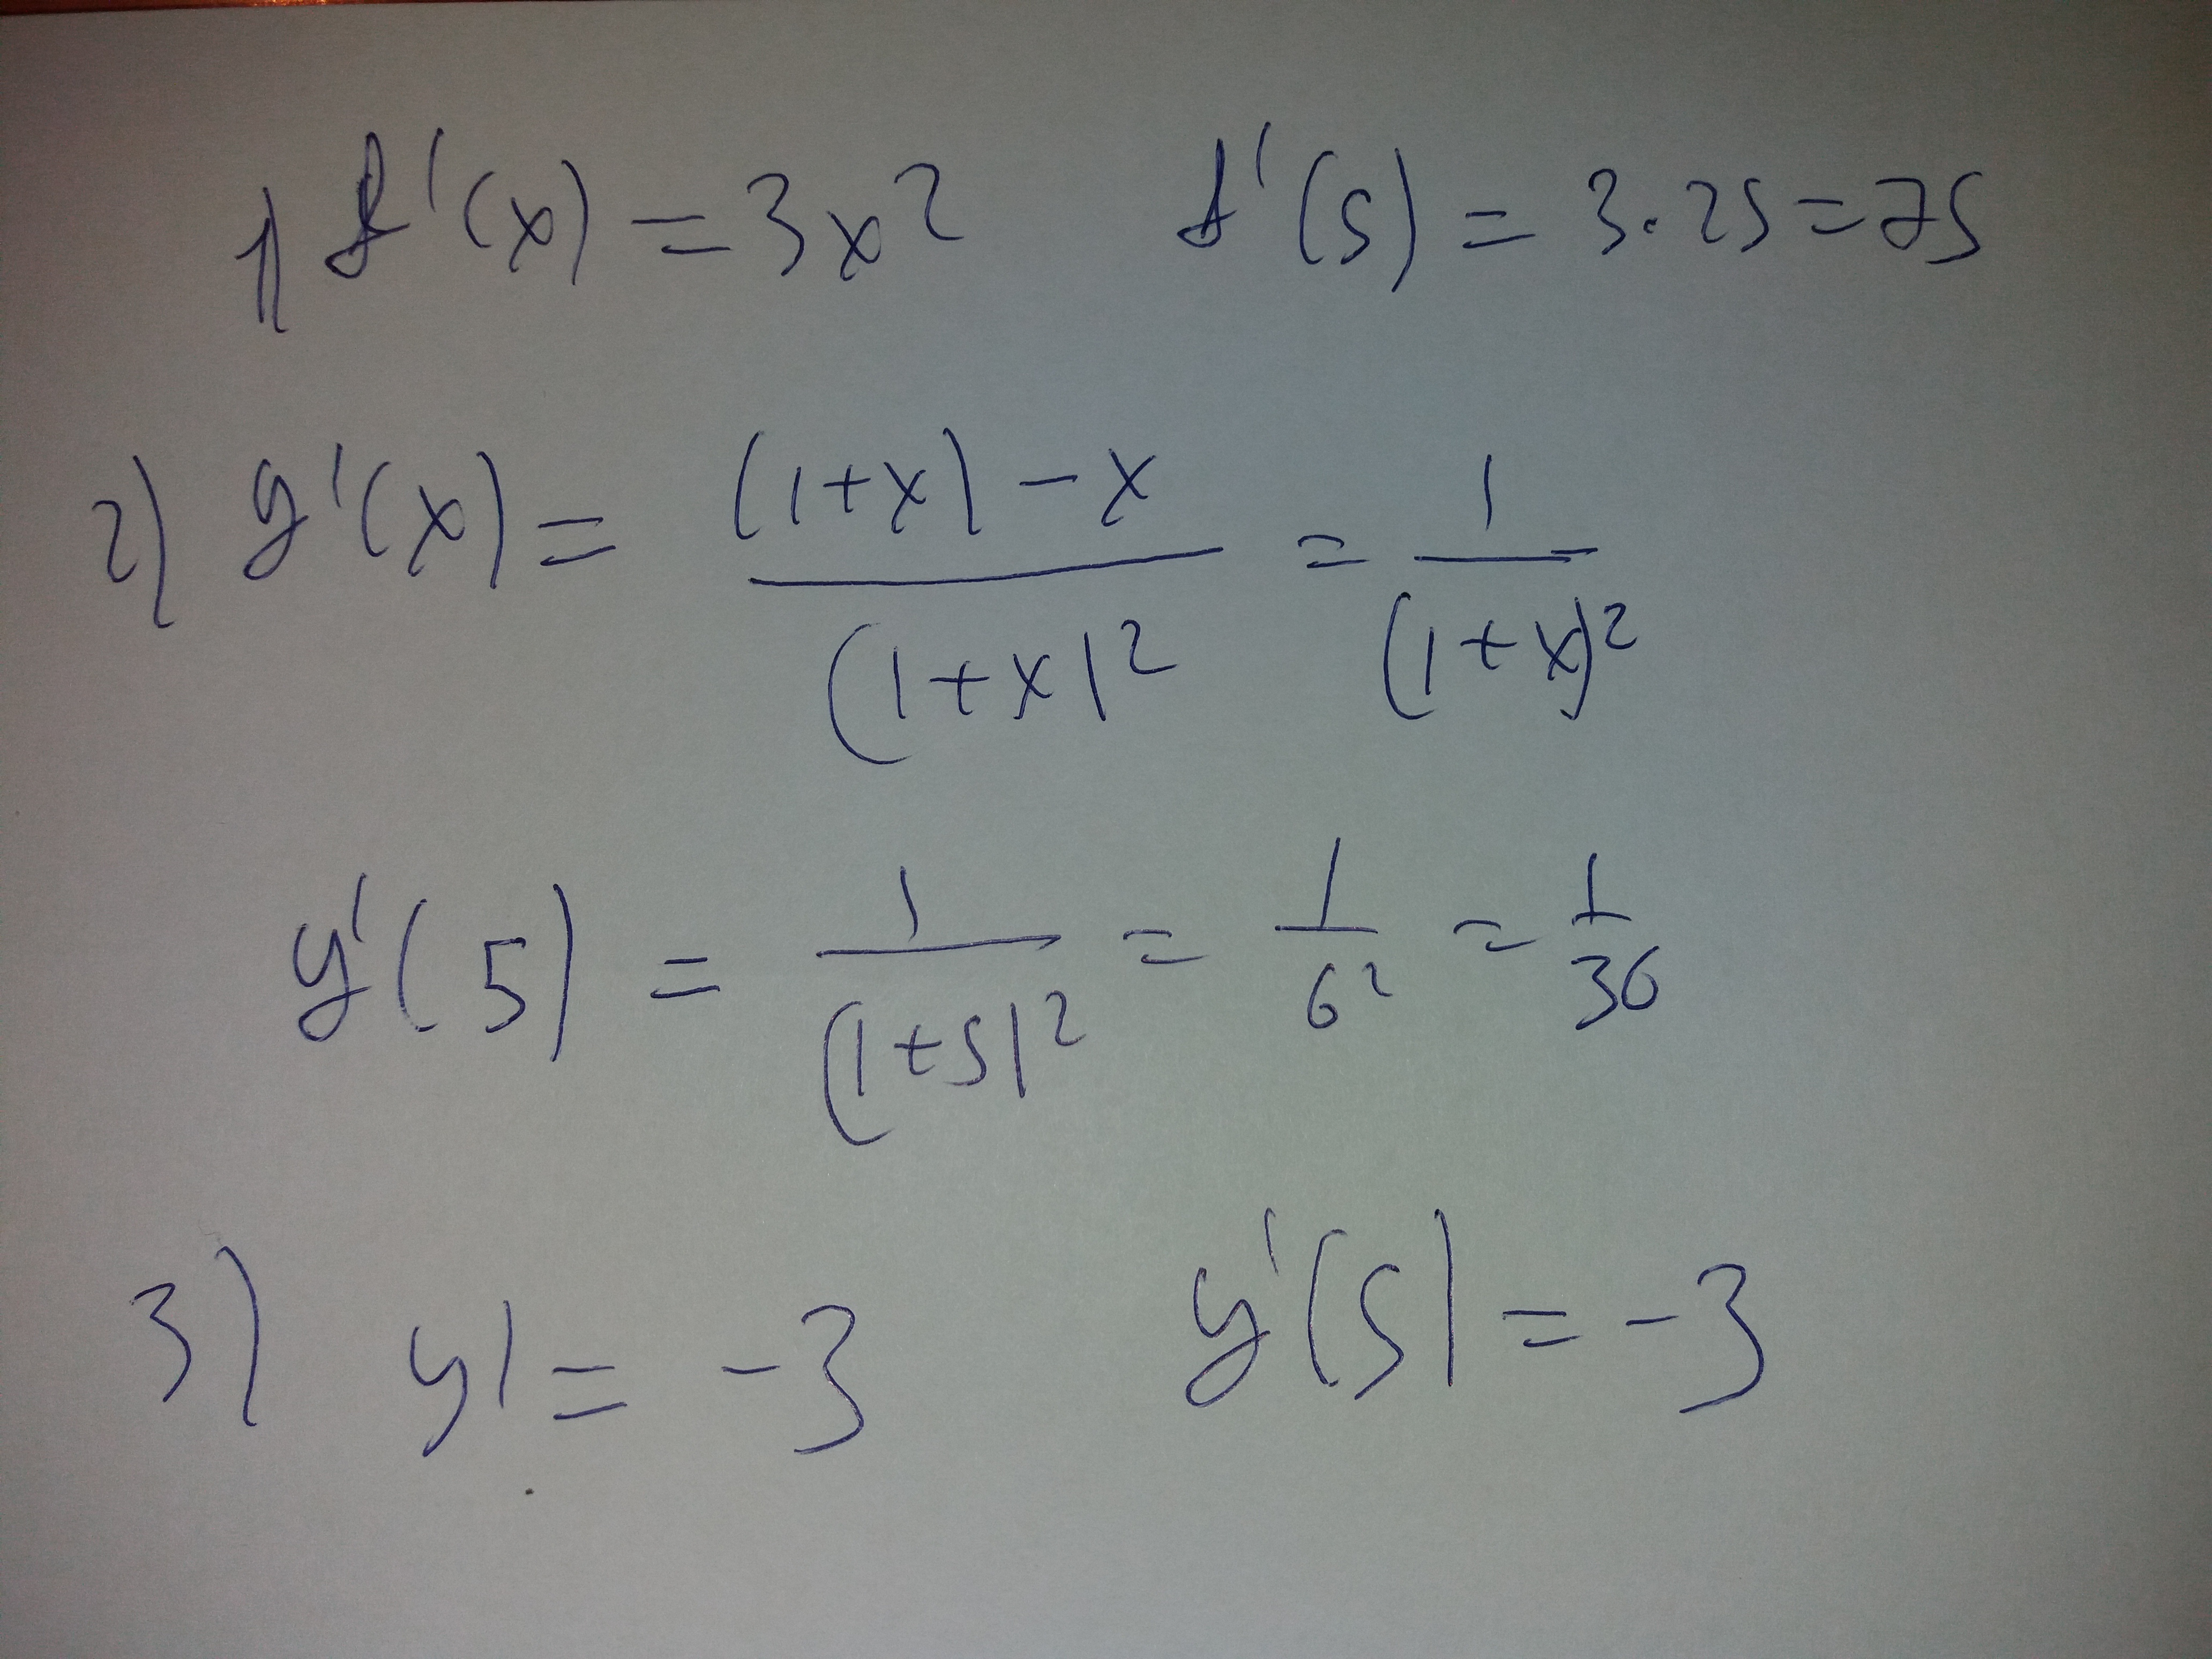 1) f'(x) = 3x² f'(5) = 3·25 = 75
2) y'(x) = ((1+x) - x)/(1+x)² = 1/(1+x)²
y'(5) = 1/(1+5)² = 1/6² = 1/36
3) y' = -3 y'(5) = -3